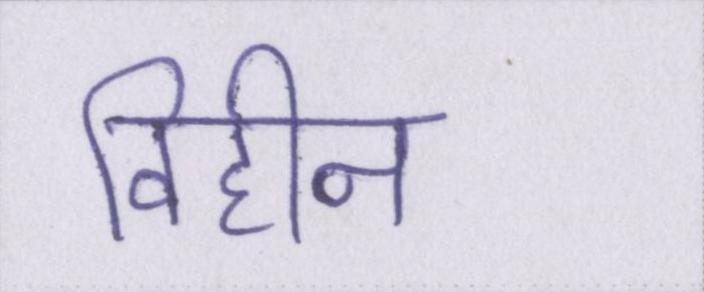 विहीन